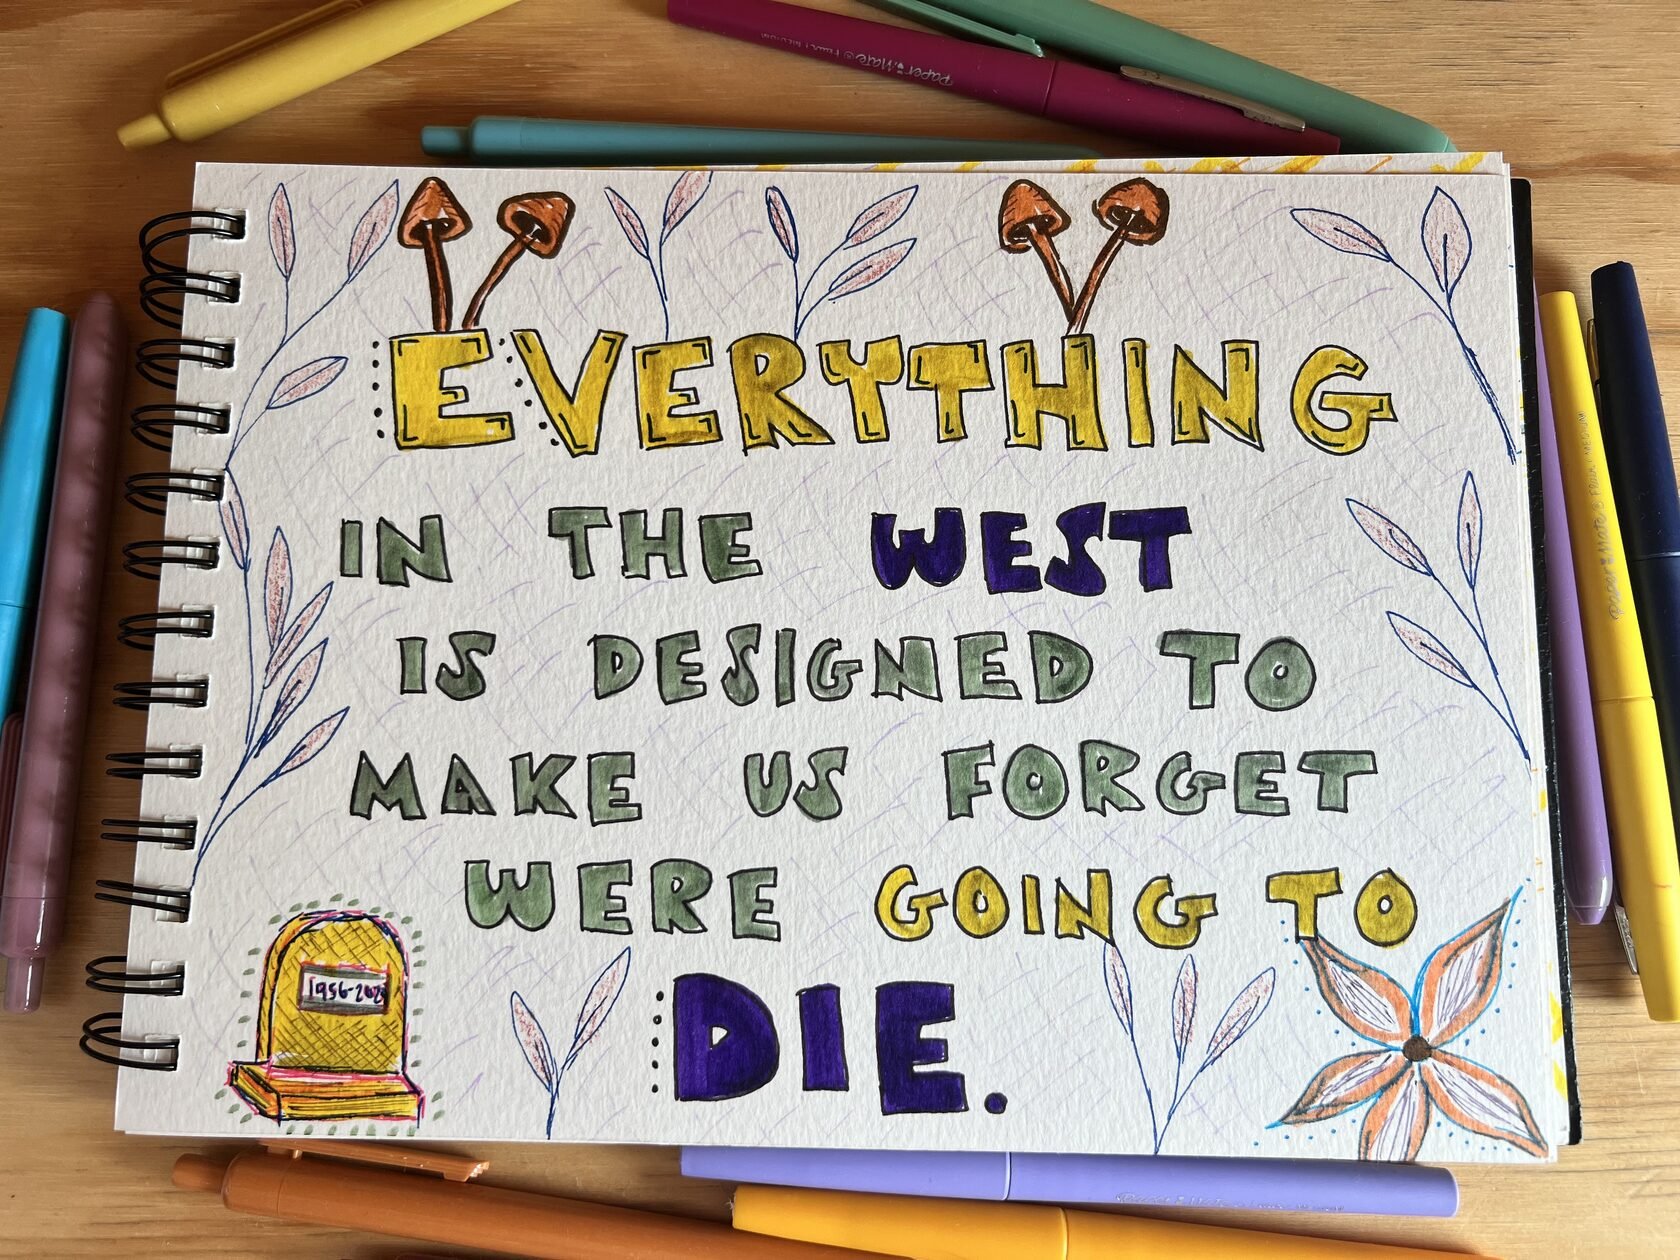 Paper Mate Flair MEDIUM
EVERYTHING
IN THE WEST
IS DESIGNED TO
MAKE US FORGET
WERE GOING TO
DIE.
Paper Mate Flair MEDIUM
Paper Mate